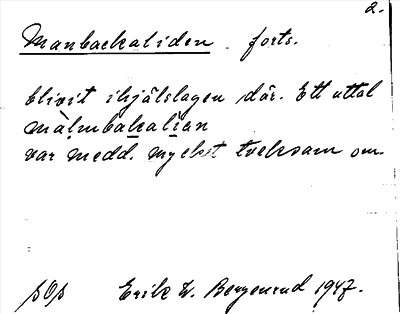 2.
Manbackaliden forts.
blivit ihjälslagen där. Ett uttal
màlmbakalian
var medd. mycket tveksam om.
SOS Erik W. Bergenrud 1947.